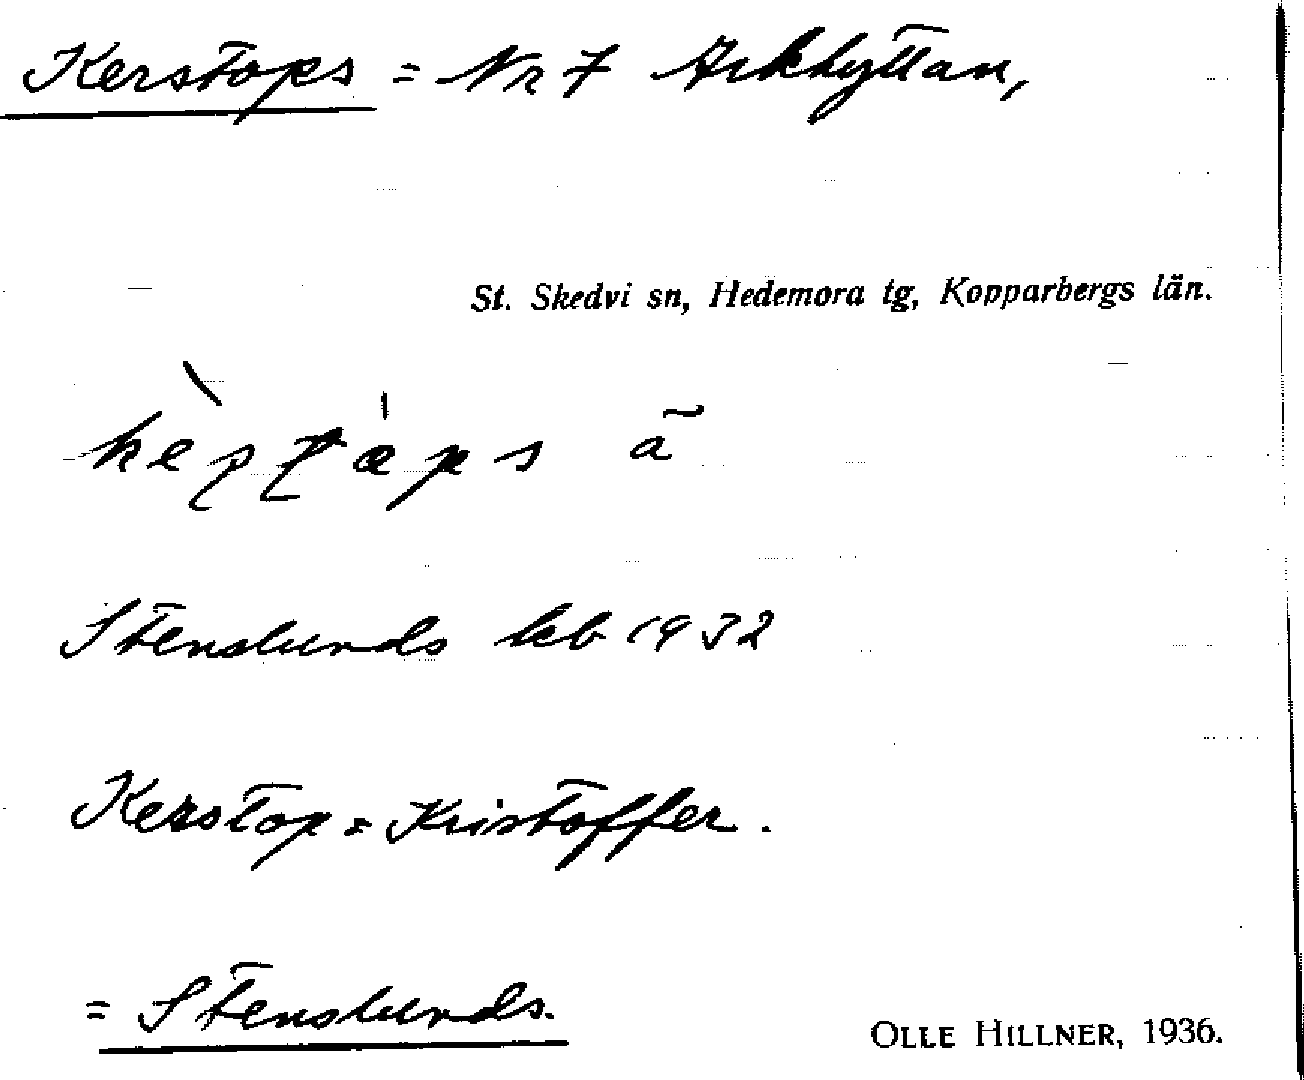 Kerstops = Nr 7 Arkhyttan,
St. Skedvi sn, Hedemora tg, Kopparbergs län.
Stenslunds kb 1932
Kerstop = Kristoffer.
= Stenslunds.
OLLE HILLNER, 1936.